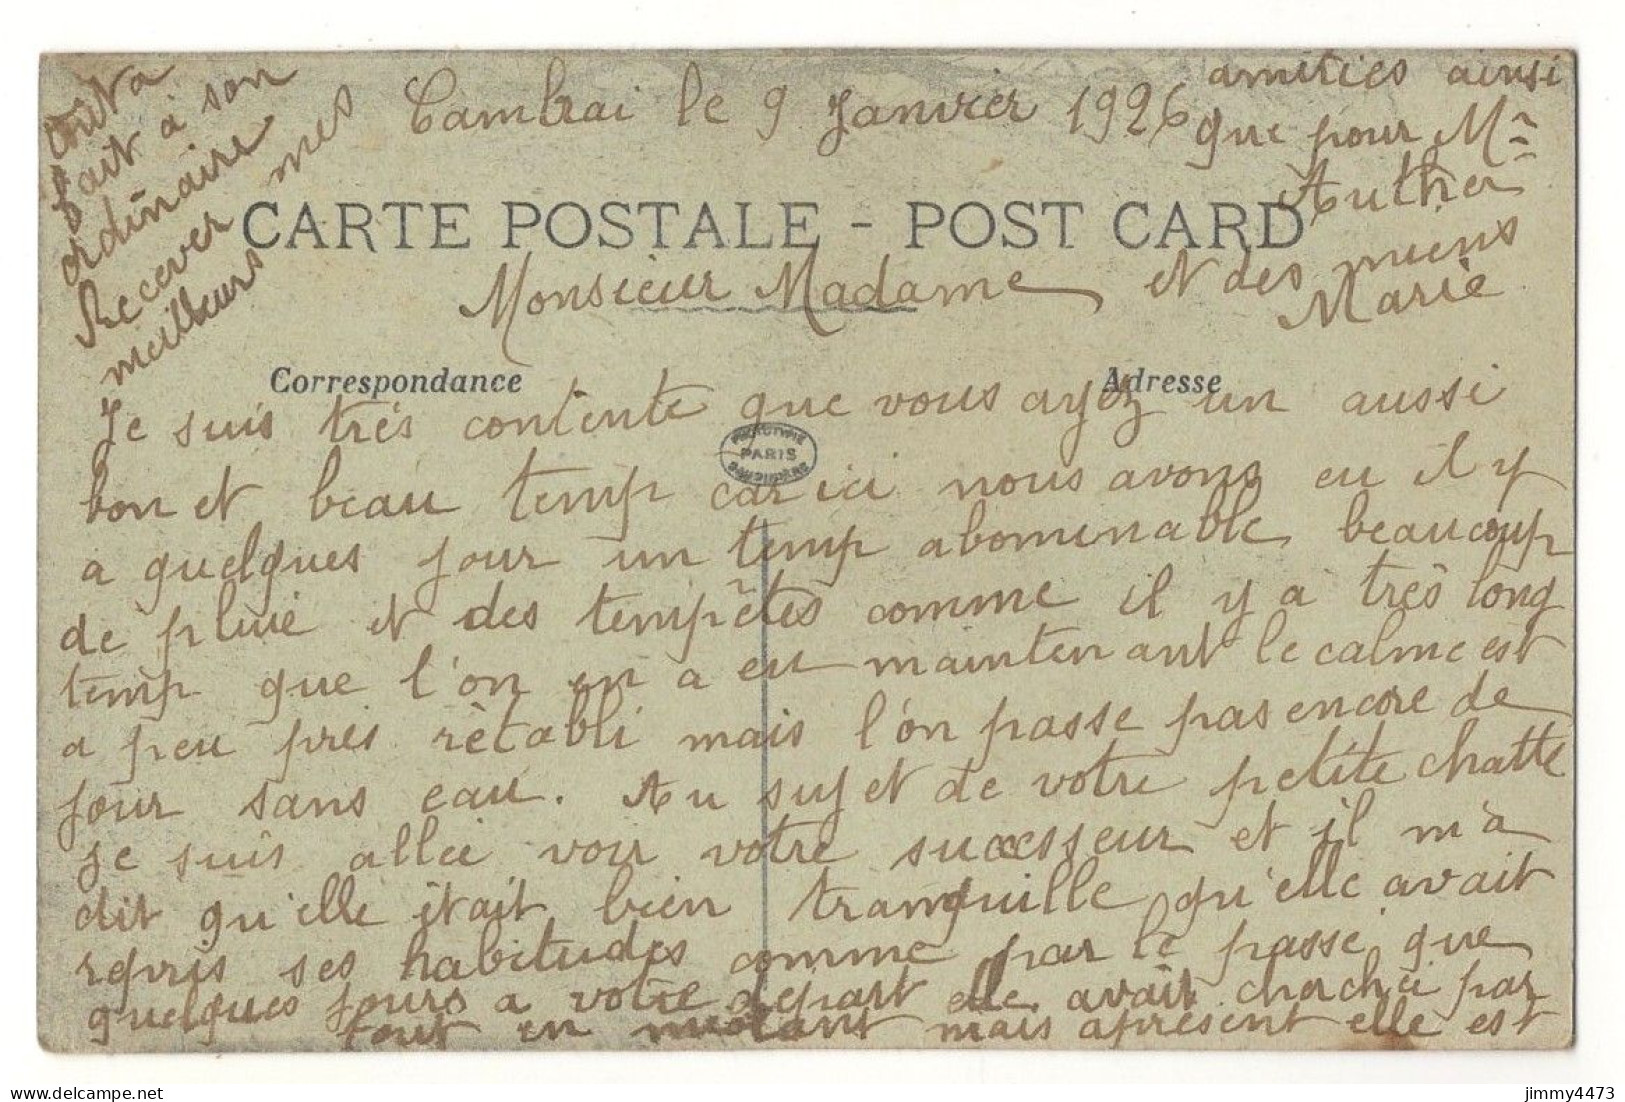 Cambrai le 9 Janvier 1926
CARTE POSTALE - POST CARD
Monsieur Madame
Correspondance
Adresse
PHOTOTYPIE
PARIS
Je suis très contente que vous ayez un aussi
bon et beau temp car ici nous avons eu il y
a quelques jour un temp abominable beaucoup
de pluie et des tempêtes comme il y a très long
temp que l'on en a eu maintenant le calme est
a peu près rètabli mais l'on passe pas encore de
jour sans eau. Au sujet de votre petite chatte
je suis allée voir votre successeur et il m'a
dit qu'elle était bien tranquille qu'elle avait
repris ses habitudes comme par le passé que
quelques jours a votre départ elle avait cherchée par
tout en miolant mais apresent elle est
tout a
fait à son
ordinaire
Recever mes
meilleurs
amitiés ainsi
que pour Mr
Auther
et des miens
Marie
jimmy4473